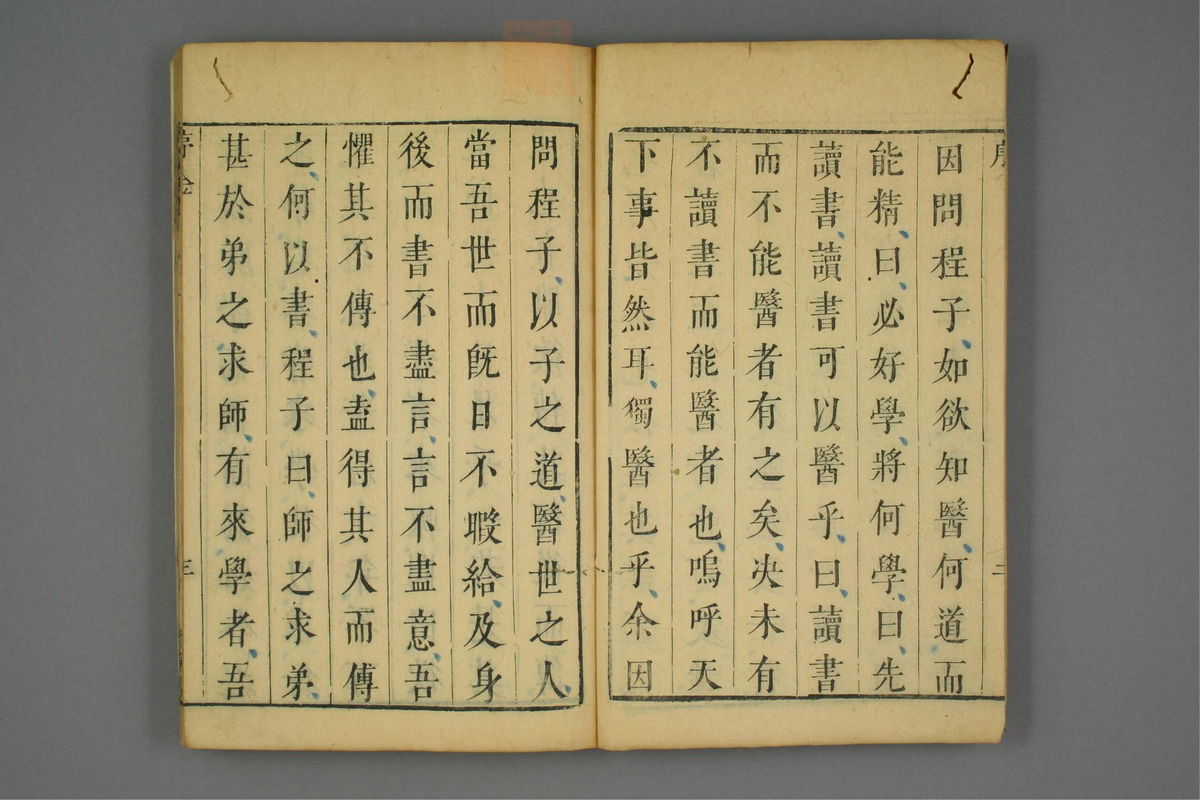 序
因問程子、如欲知醫何道而
能精、曰、必好學、將何學、曰、先
讀書、讀書可以醫乎、曰、讀書
而不能醫者有之矣、决未有
不讀書而能醫者也、嗚呼天
下事皆然耳、獨醫也乎、余因
問程子、以子之道、醫世之人、
當吾世而旣日不暇給、及身
後而書不盡言、言不盡意、吾
懼其不傳也、盍得其人而傳
之、何以書、程子曰、師之求弟、
甚於弟之求師、有來學者、吾